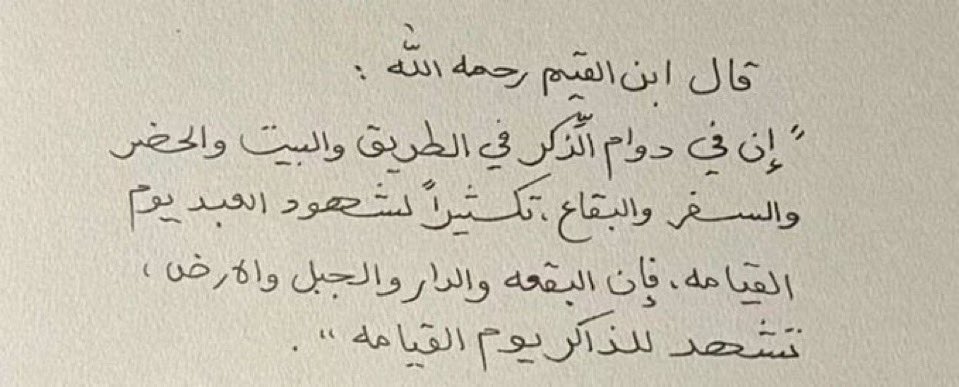 قال ابن القيم رحمه الله :
" إن في دوام الذِّكر في الطريق والبيت والحضر
والسفر والبقاع ، تكثيراً لشهود العبد يوم
القيامه ، فإن البقعه والدار والجبل والارض ،
تشهد للذاكر يوم القيامه " .